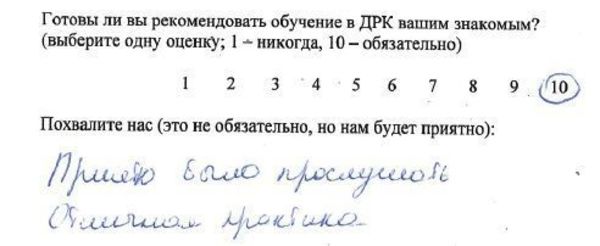 Готовы ли вы рекомендовать обучение в ДРК вашим знакомым?
(выберите одну оценку; 1 – никогда, 10 – обязательно)
1 2 3 4 5 6 7 8 9 10
Похвалите нас (это не обязательно, но нам будет приятно):
Приятно было прослушать
Отличная практика.